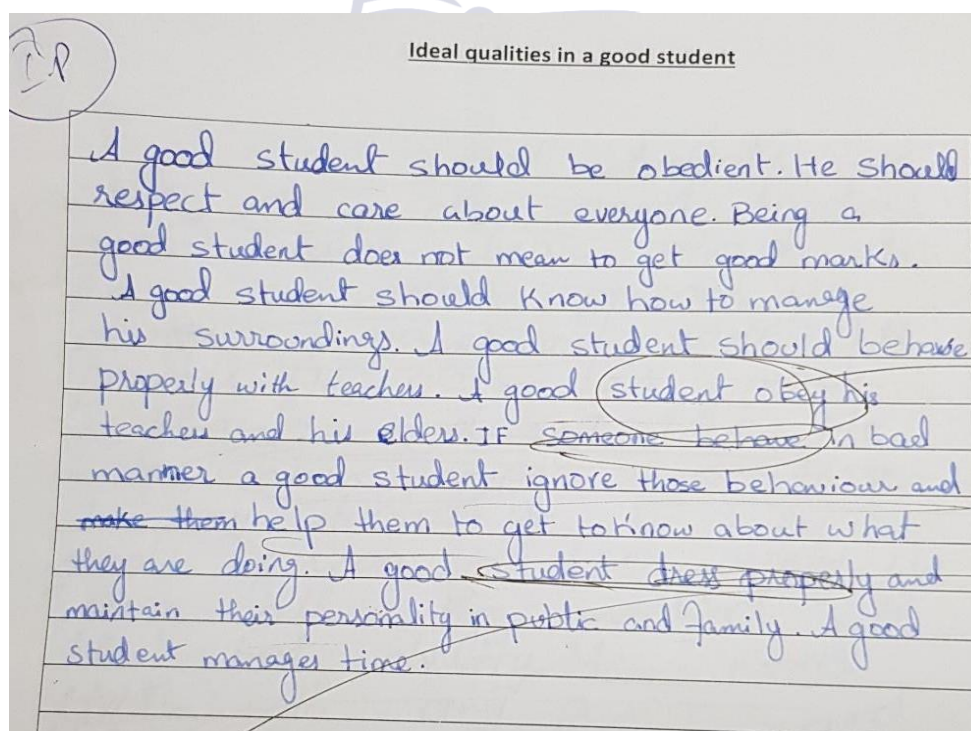 IP
Ideal qualities in a good student
A good student should be obedient. He should
respect and care about everyone. Being a
good student does not mean to get good marks.
A good student should know how to manage
his surroundings. A good student should behave
properly with teachers. A good student obey his
teachers and his elders. IF someone behave in bad
manner a good student ignore those behaviour and
make them help them to get to know about what
they are doing. A good student dress properly and
maintain their personality in public and family. A good
student manages time.